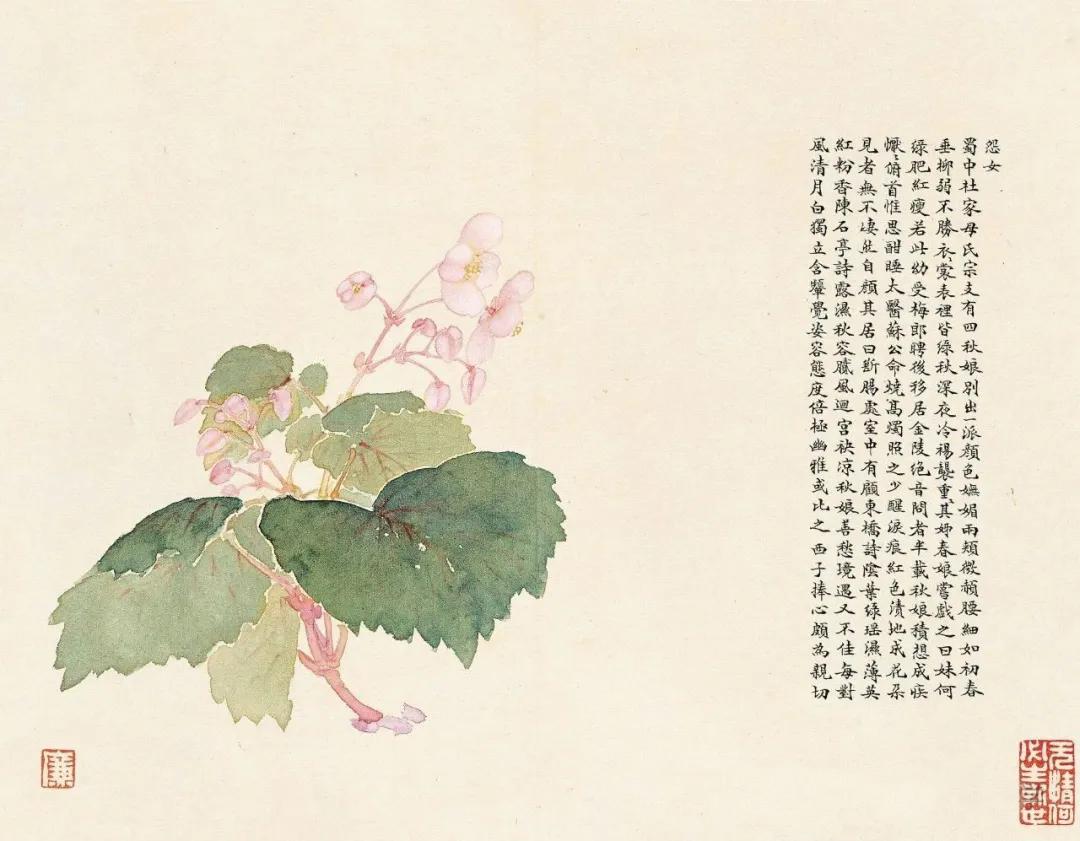 怨女
蜀中社家母氏宗支有四秋娘別出一派顏色嫵媚兩頰微頳腰細如初春
垂柳弱不勝衣裳表裡皆綠秋深夜冷裼襲重其姊春娘嘗戲之曰妹何
綠肥紅瘦若此幼受梅郎聘後移居金陵絕音問者半載秋娘積想成疾
懨俯首惟思酣睡太醫蘇公命燒高燭照之少醒淚痕紅色漬地成花朵
見者無不淒然自顏其居曰斷腸處室中有顧東橋詩陰葉綠瑶濕薄英
紅粉香陳石亭詩露濕秋容膩風迴宮袂涼秋娘善愁境遇又不佳每對
風清月白獨立含顰覺姿容態度倍極幽雅或比之西子捧心頗為親切
廉